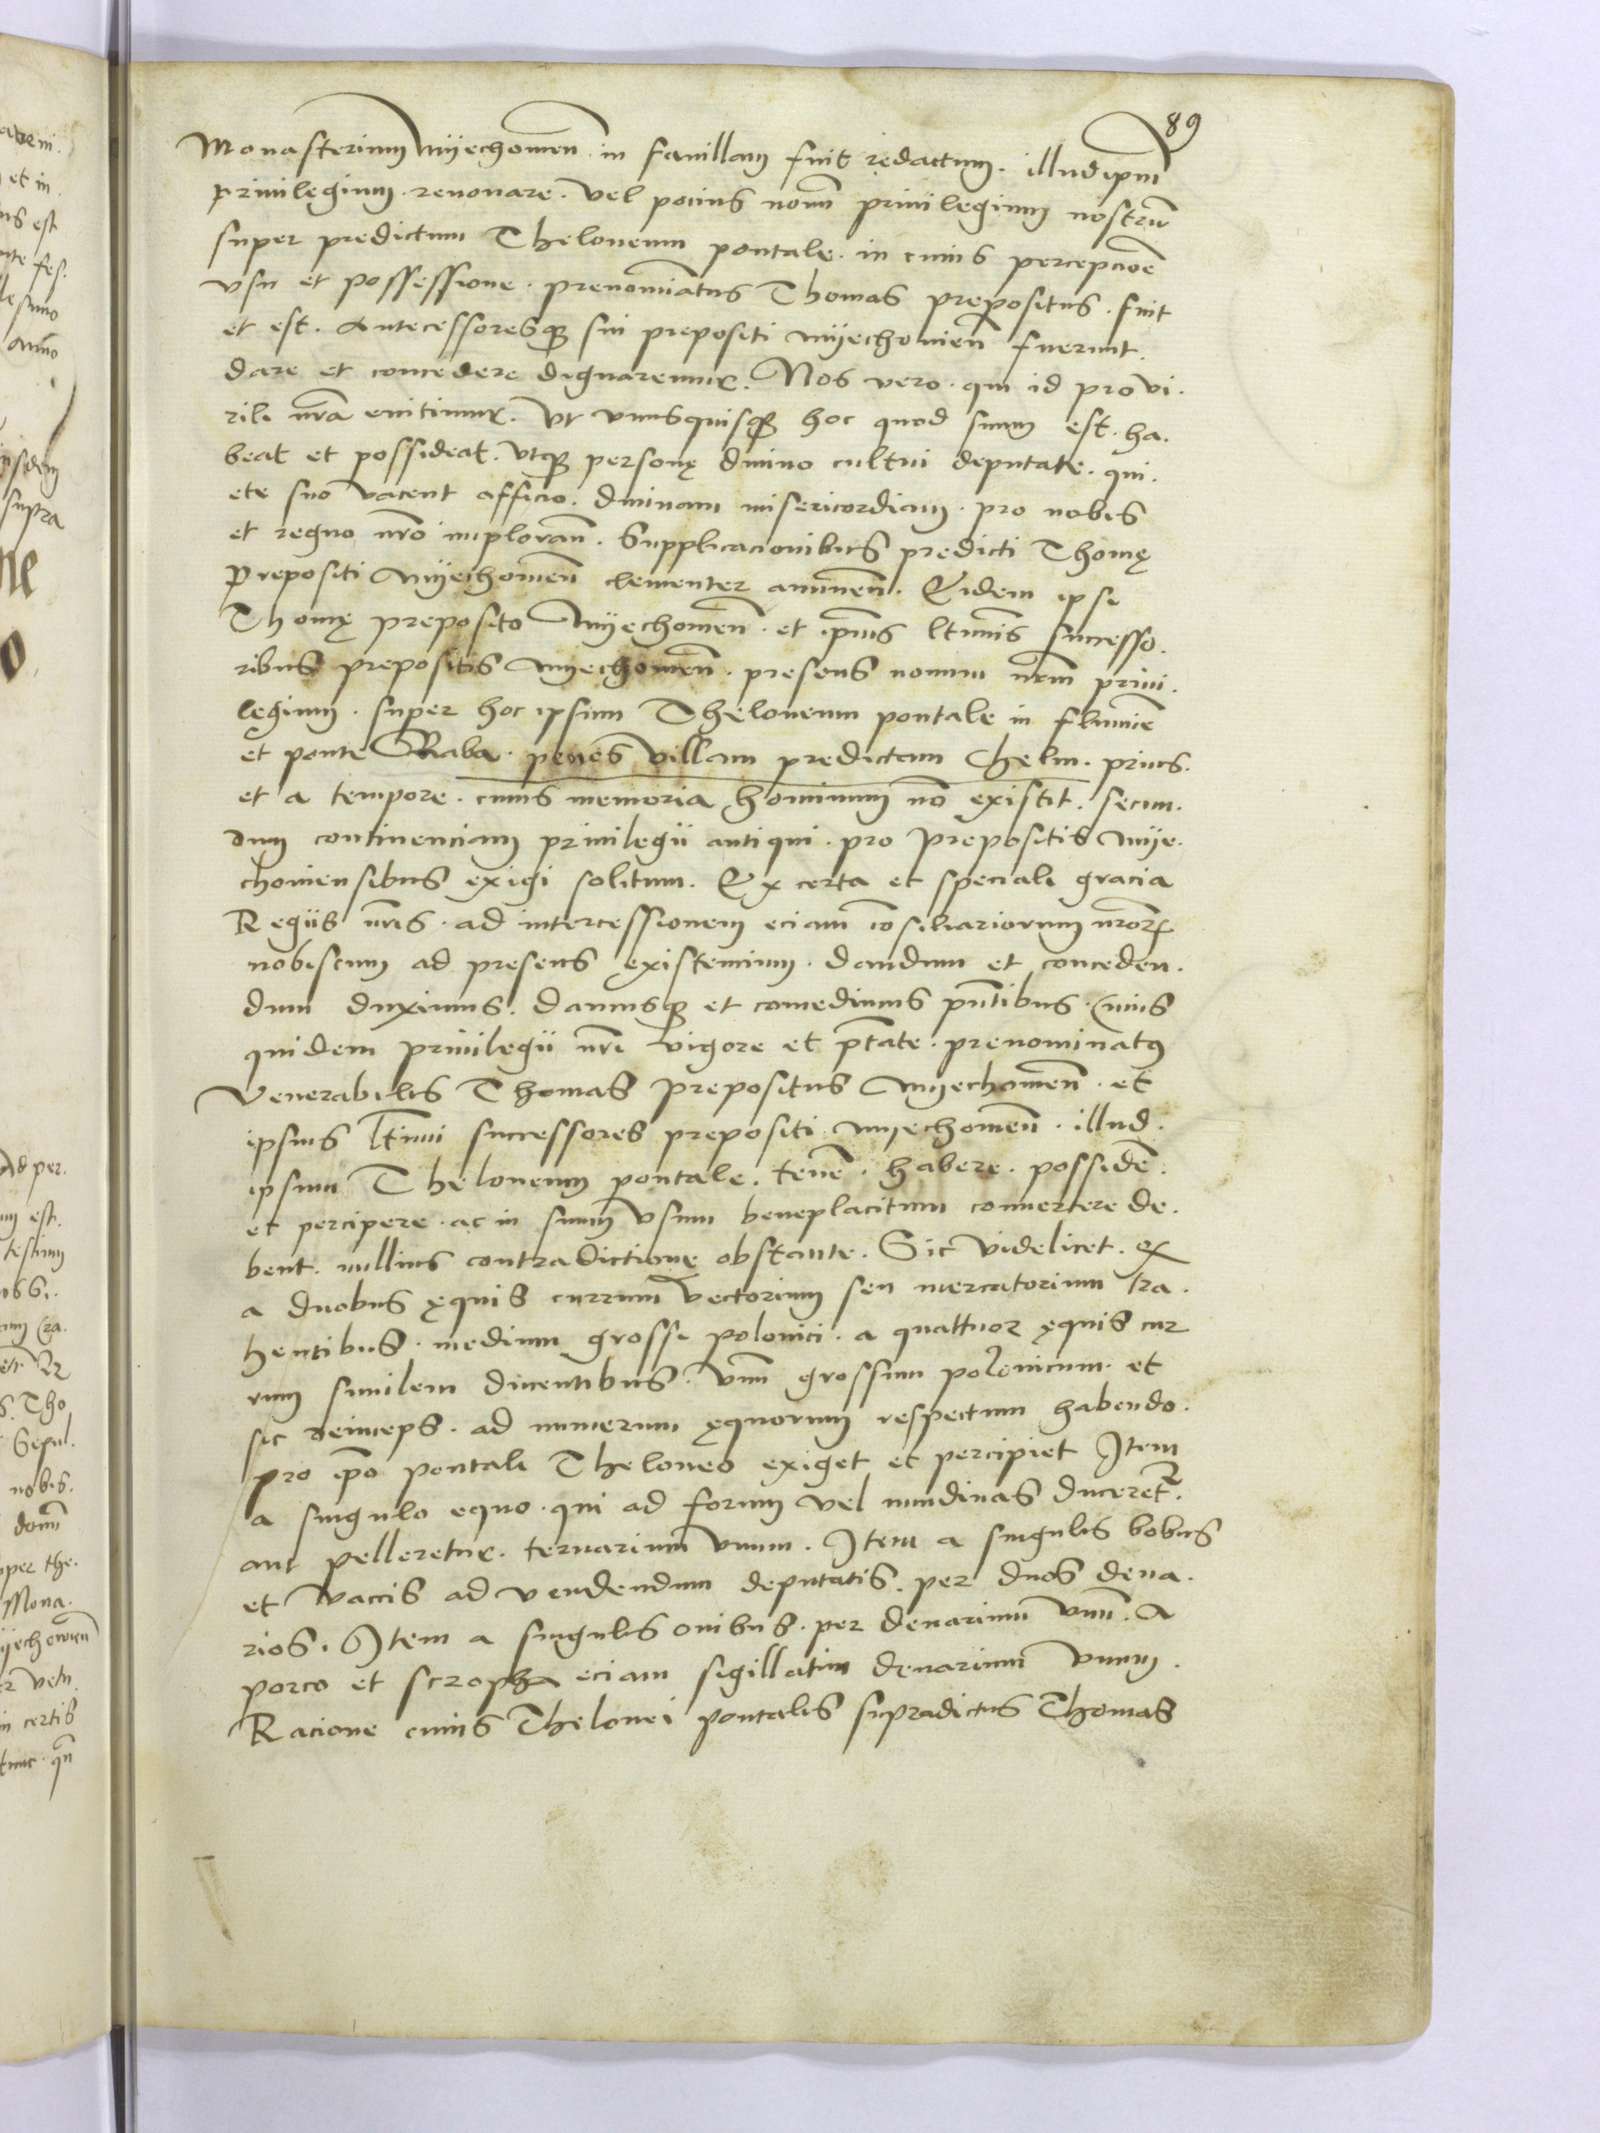 89
Monasterium Myechowien̄. in favillam fuit redactum. illud ipm̄
privilegium. renovare. vel pocius novū privilegium nostrū
super predictum Theloneum pontale. in cuius percepcioē
vsu et possessione. prenomīatus Thomas prepositus. fuit
et est. Antecessoresqȝ sui prepositi Myechowien̄ fuerunt.
dare et concedere dignaremur. Nos vero. qui id pro vi.
rili nr̄a enitimur. Vt vnusquisqȝ hoc quod suum est. ha.
beat et possideat. vtqȝ personę divino cultui deputate. qui.
ete suo vacent officio. divinam misericordiam. pro nobis
et regno nr̄o imploran̄. Supplicacionibus predicti Thomę
Prepositi Myechowien̄ clementer annuen̄. Eidem ipsi
Thomę preposito Myechowien̄. et ip̄ius lt̄imis successo.
ribus prepositis Myechowien̄. presens novum nr̄m privi.
legium. super hoc ipsum Theloneum pontale in flumīe
et ponte Raba. penes villam predictam Chelm. prius.
et a tempore. cuius memoria hominum nō existit. secun.
dum continenciam privilegii antiqui. pro prepositis Mye.
choviensibus exigi solitum. Ex certa et speciali gracia
Regiis nr̄is. ad intercessionem eciam cōsiliariorum nr̄oꝝ
nobiscum ad presens existencium. dandum et conceden.
dum duximus. damusqȝ et concedimus pn̄tibus. Cuius
quidem privilegii nr̄i vigore et pt̄ate. prenominatꝰ
Venerabilis Thomas prepositus Myechowien̄. et
ipsius lt̄imi successores prepositi Myechowien̄. illud.
ipsum Theloneum pontale. tenē. habere. possidē.
et percipere. ac in suum vsum beneplacitum convertere de.
bent. nullius contradictione obstante. Sic videlicet. ꝙ
a duobus ęquis currum vectorium seu mercatorium tra.
hentibus. medium grossi polonici. a quattuor ęquis cur
rum similem ducentibus. vnū grossum polonicum. et
sic deinceps. ad numerum ęquorum respectum habendo.
pro ip̄o pontali Theloneo exiget et percipiet Item
a singulo equo. qui ad forum vel nundinas duceret᷑.
aut pelleretur. ternarium vnum. Item a singulis bobus
et vaccis ad vendendum deputatis. per duos dena.
rios. Item a singulis ovibus. per denarium vnū. A
porco et scropha eciam sigillatim denarium vnum.
Racione cuius Thelonei pontalis supradictus Thomas